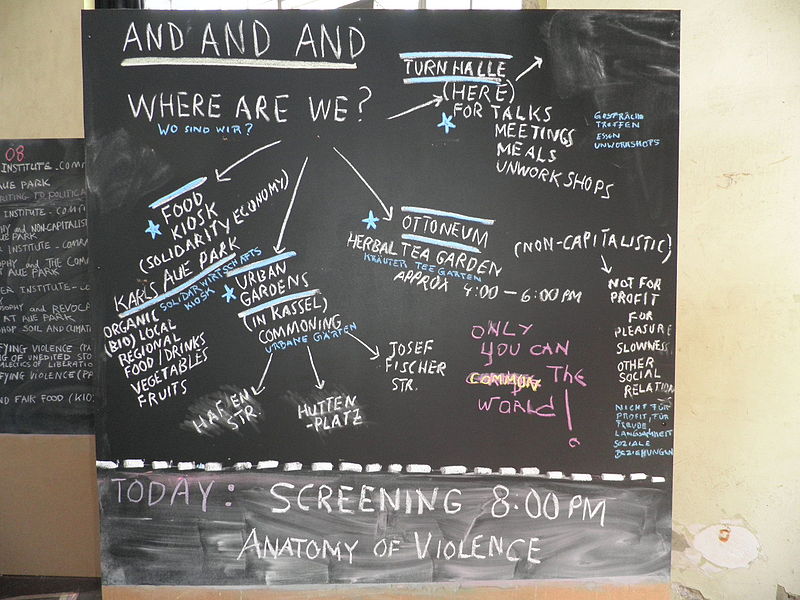 AND AND AND
WHERE ARE WE?
WO SIND WIR?
TURNHALLE
(HERE)
FOR TALKS
MEETINGS
MEALS
UNWORKSHOPS
GESPRÄCHE
TREFFEN
ESSEN
UNWORKSHOPS
FOOD
KIOSK
(SOLIDARITY ECONOMY)
KARLS AUE PARK
SOLIDARWIRTSCHAFTS
KIOSK
ORGANIC
(BIO) LOCAL
REGIONAL
FOOD/DRINKS
VEGETABLES
FRUITS
URBAN
GARDENS
(IN KASSEL)
COMMONING
URBANE GÄRTEN
HAFEN
STR.
HUTTEN
-PLATZ
JOSEF
FISCHER
STR.
OTTONEUM
HERBAL TEA GARDEN
KRÄUTER TEE GARTEN
APPROX 4:00 - 6:00 PM
(NON-CAPITALISTIC)
NOT FOR
PROFIT
FOR
PLEASURE
SLOWNESS
OTHER
SOCIAL
RELATION
NICHT FÜR
PROFIT, FÜR
FREUDE,
LANGSAMKEIT
SOZIALE
BEZIEHUNGEN
ONLY
YOU CAN
COMMON THE
WORLD!
TODAY: SCREENING 8.00 PM
ANATOMY OF VIOLENCE
08
INSTITUTE - COMM
AUE PARK
WRITING TO POLITICA
INSTITUTE - COMM
PHY AND NON-CAPITALIST
AUE PARK
INSTITUTE - COMM
PHY AND THE COMM
AT AUE PARK
ER INSTITUTE - CO
OSOPHY AND REVOCA
AT AUE PARK
SHOP SOIL AND CLIMAT
FYING VIOLENCE (PA
NG OF UNEDITED STO
ALECTICS OF LIBERATIO
FYING VIOLENCE (PA
ND FAIR FOOD (KIO